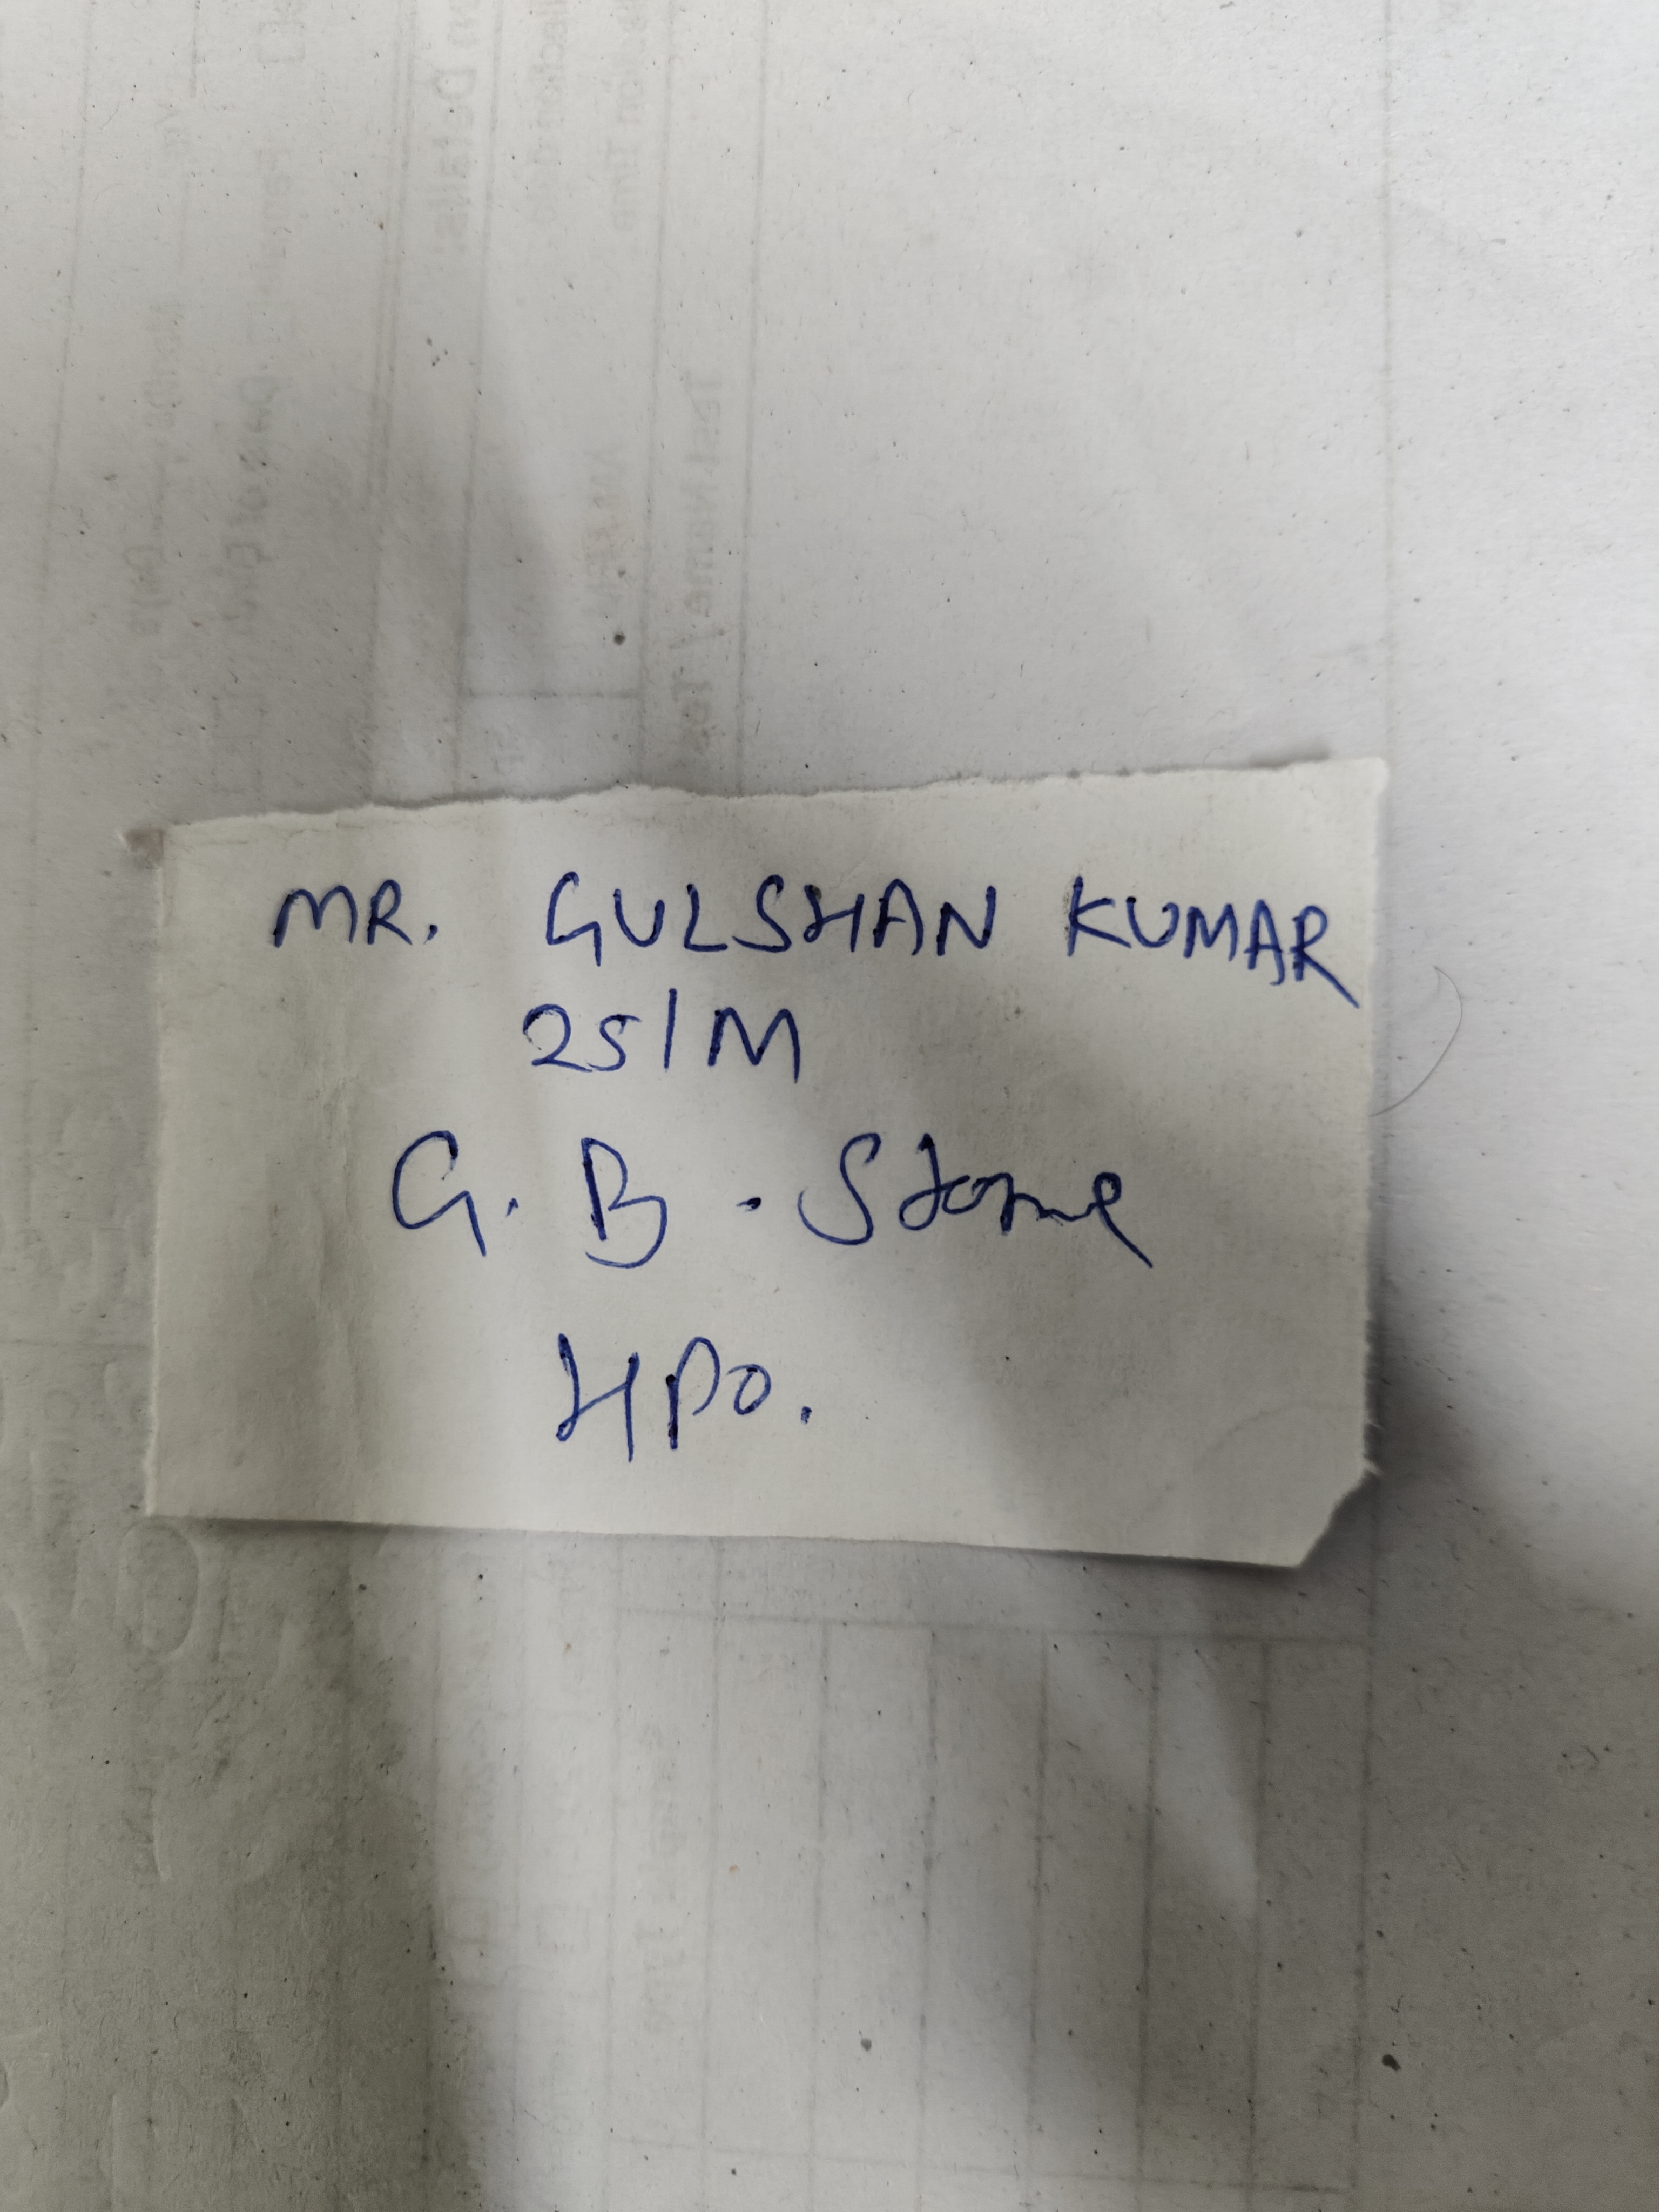 MR. GULSHAN KUMAR
25/M
G.B. Stone
HPO.